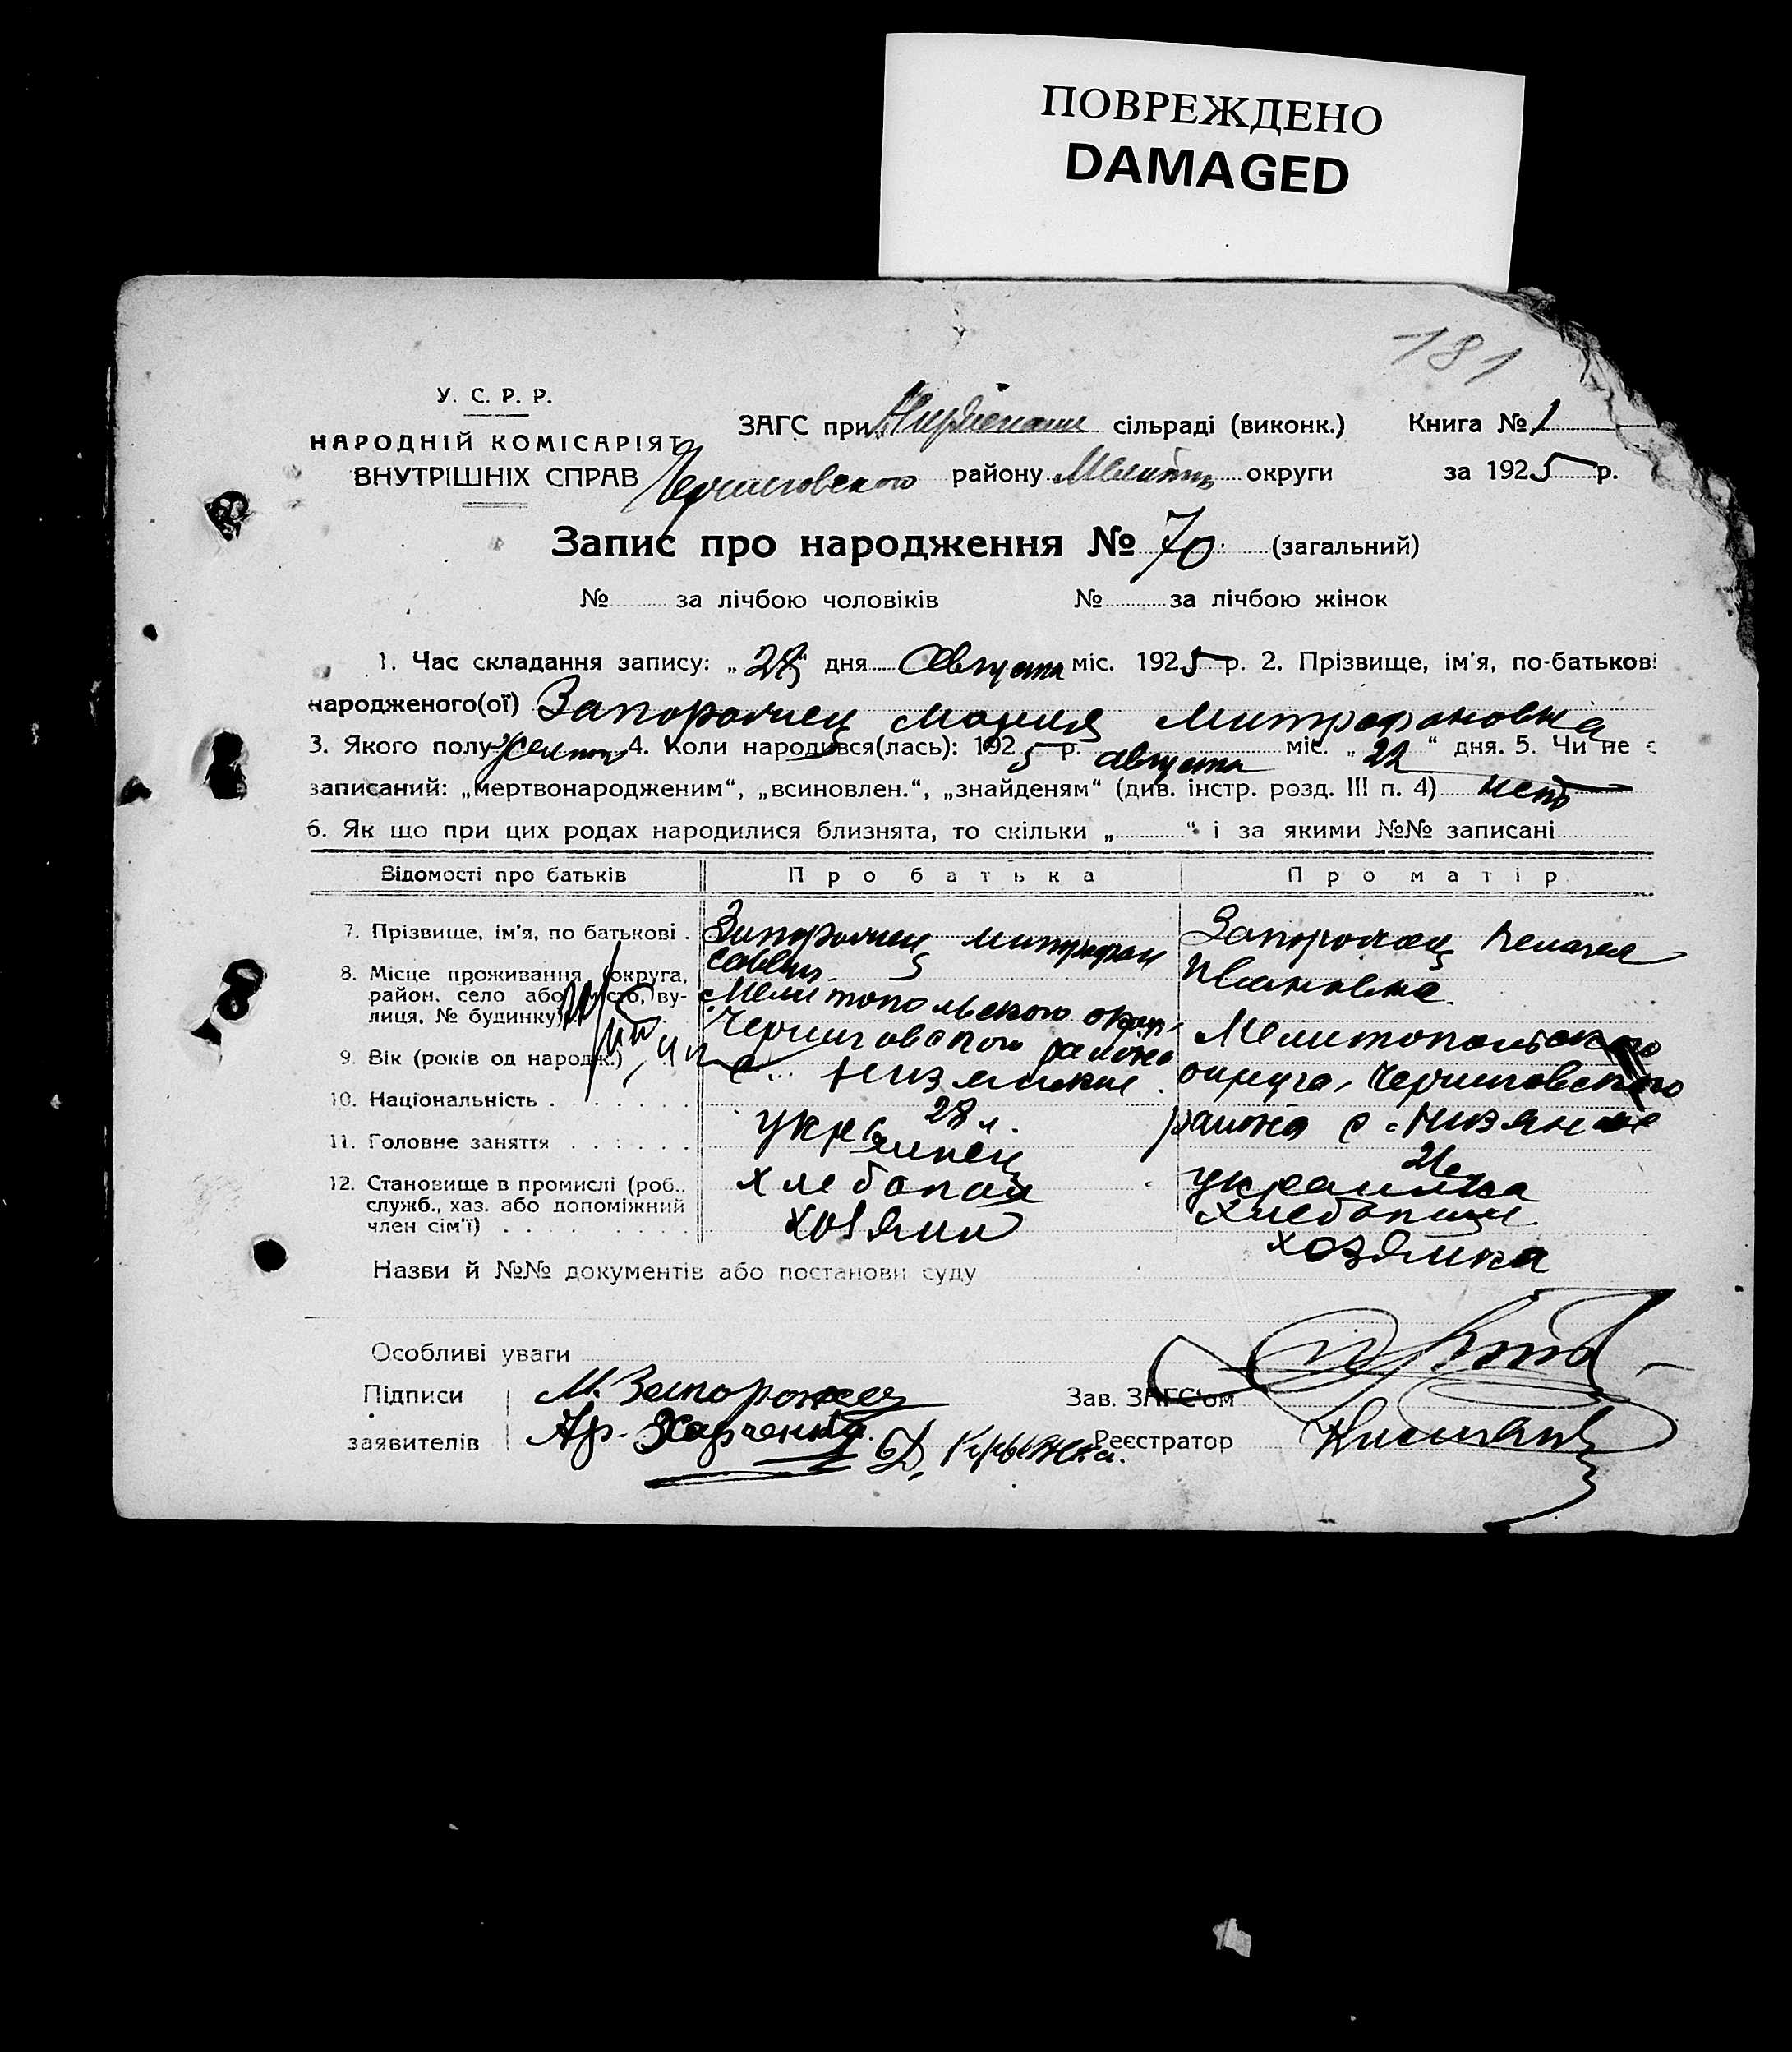 ПОВРЕЖДЕНО
DAMAGED
181
У. С. Р. Р.
НАРОДНІЙ КОМІСАРІЯТ
ВНУТРІШНІХ СПРАВ
ЗАГС при сільраді (виконк.) Книга № 1
Черниговского району Мелитоп округи за 1925 р.
Запис про народження № 70 (загальний)
№ за лічбою чоловіків № за лічбою жінок
1. Час складання запису: „28“ дня Августа міс. 1925 р. 2. Прізвище, ім'я, по-батькові
народженого(ої) Запорожец Мария Митрофановна
3. Якого полу 4. Коли народився(лась): 1925 р. августа міс. „22“ дня. 5. Чи не є
записаний: „мертвонародженим“, „всиновлен.“, „знайденям“ (див. інстр. розд. III п. 4) нет
6. Як що при цих родах народилися близнята, то скільки „ “ і за якими №№ записані
Відомості про батьків Про батька Про матір
7. Прізвище, ім'я, по батькові . Запорожец Митрофан Запорожец Пелагея
Саввич Ивановна
8. Місце проживання (округа,
район, село або місто, ву-
лиця, № будинку)
Мелитопольского округ.
Черниговского района
с. Низяники
Мелитопольского
округа, Черниговского
района с.
9. Вік (років од народж.) 28 л.
10. Національність . . . . . . . украинец украинка
11. Головне заняття . . . . . . хлебопаш хлебопаш
12. Становище в промислі (роб.,
служб., хаз. або допоміжний
член сім'ї) . . . . . . . .
хозяин хозяйка
Назви й №№ документів або постанови суду
Особливі уваги
Підписи М. Запорожец Зав. ЗАГС'ом
заявителів Ар. Харченко Реєстратор